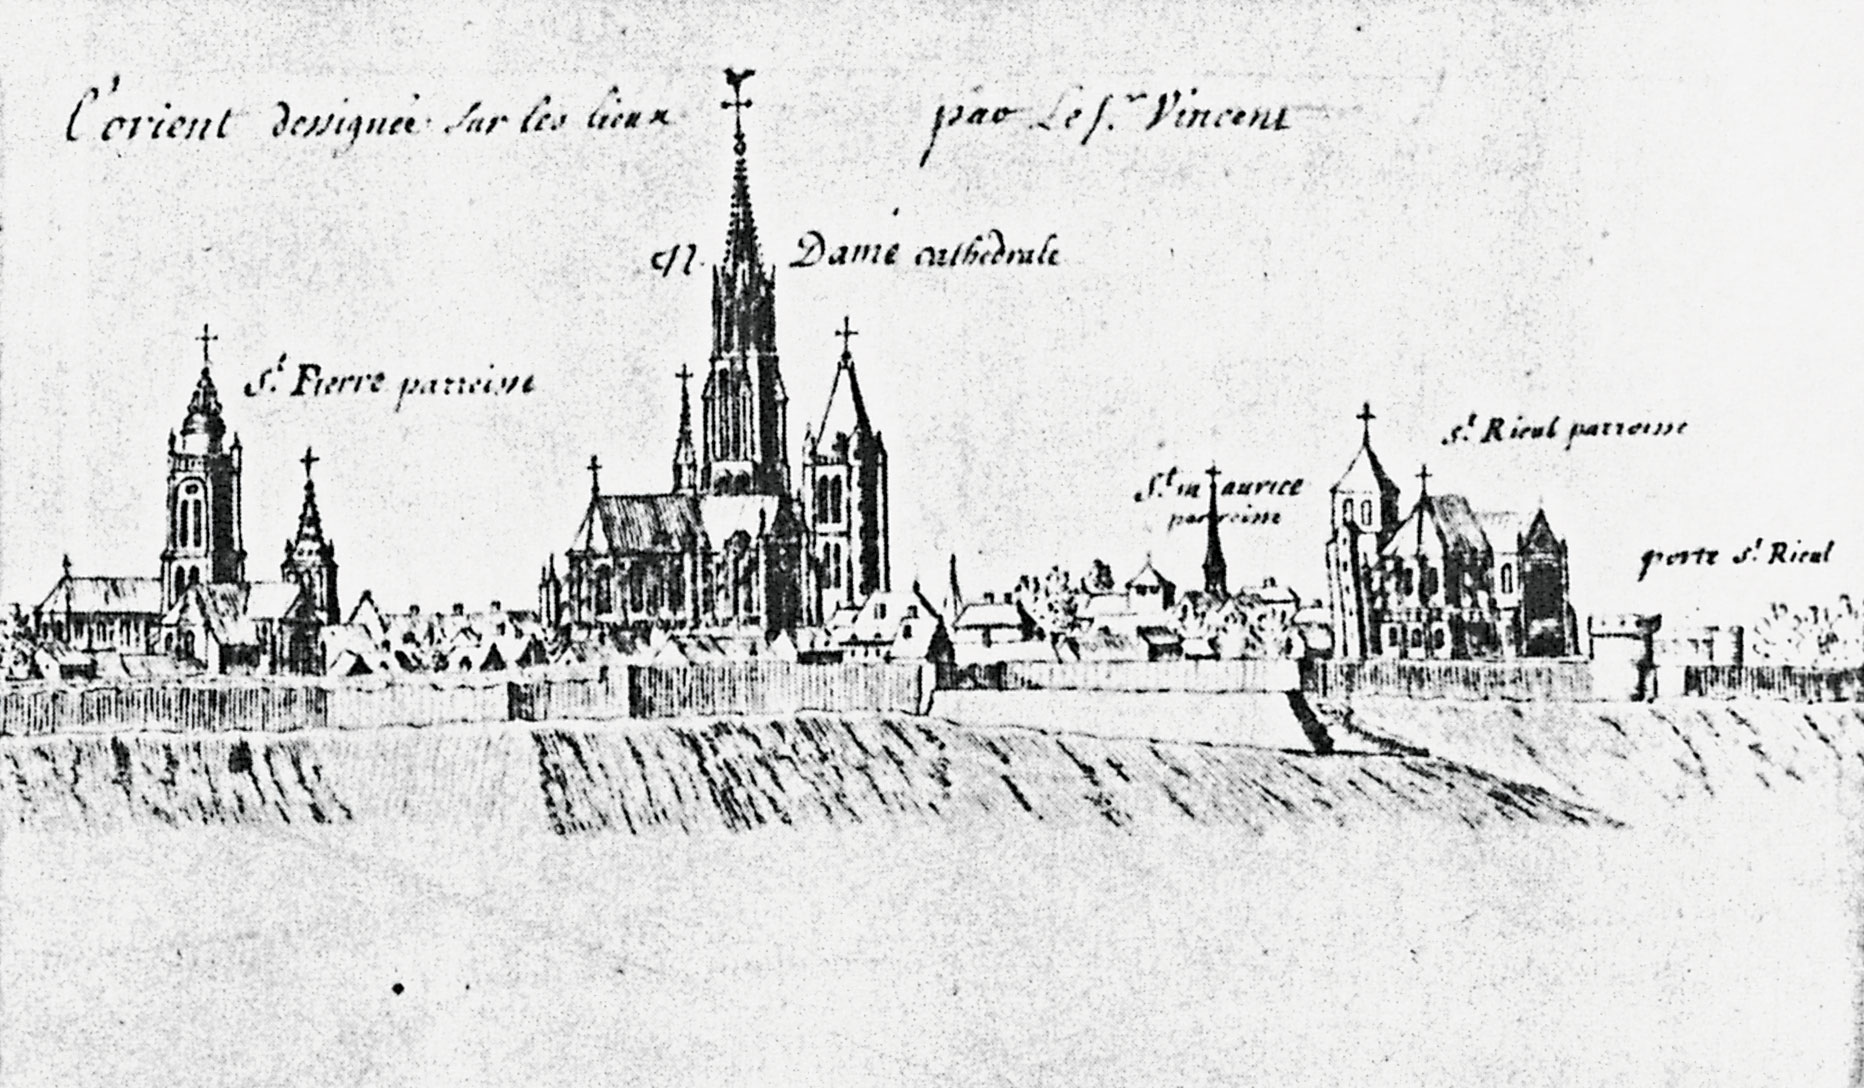 l'orient dessignée sur les lieux par Le Sr Vincent
N. Dame cathedrale
St Pierre parroisse
St Rieul parroisse
St maurice
parroisse
porte St Rieul